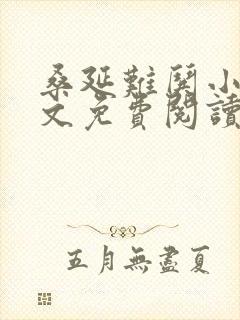 桑延難哄小
文免費閱讀
五月無盡夏